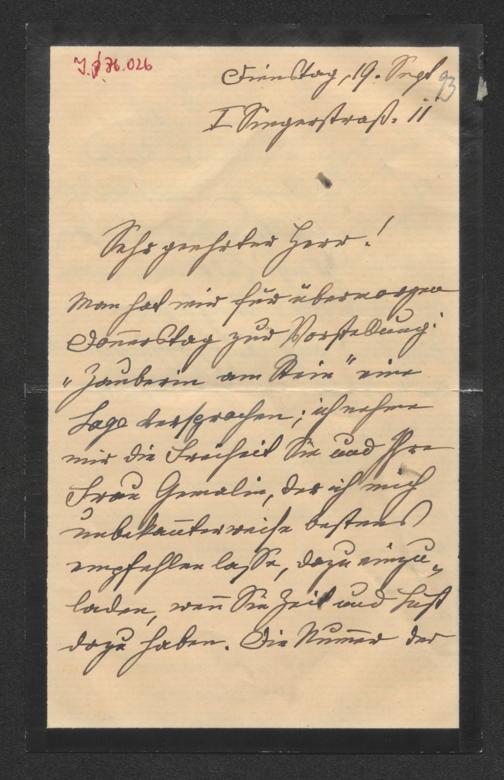 J. 76.026
Dienstag, 19. Sept 93
I Singerstraß. 11
Sehr geehrter Herr!
Man hat mir für übermorgen
Donnerstag zur Vorstellung:
"Zauberin am Stein" eine
Loge versprochen; ich nehme
mir die Freiheit Sie und Ihre
Frau Gemalin, der ich mich
unbekannterweise bestens
empfehlen lasse, dazu einzu-
laden, wenn Sie Zeit und Lust
dazu haben. Die Numer der